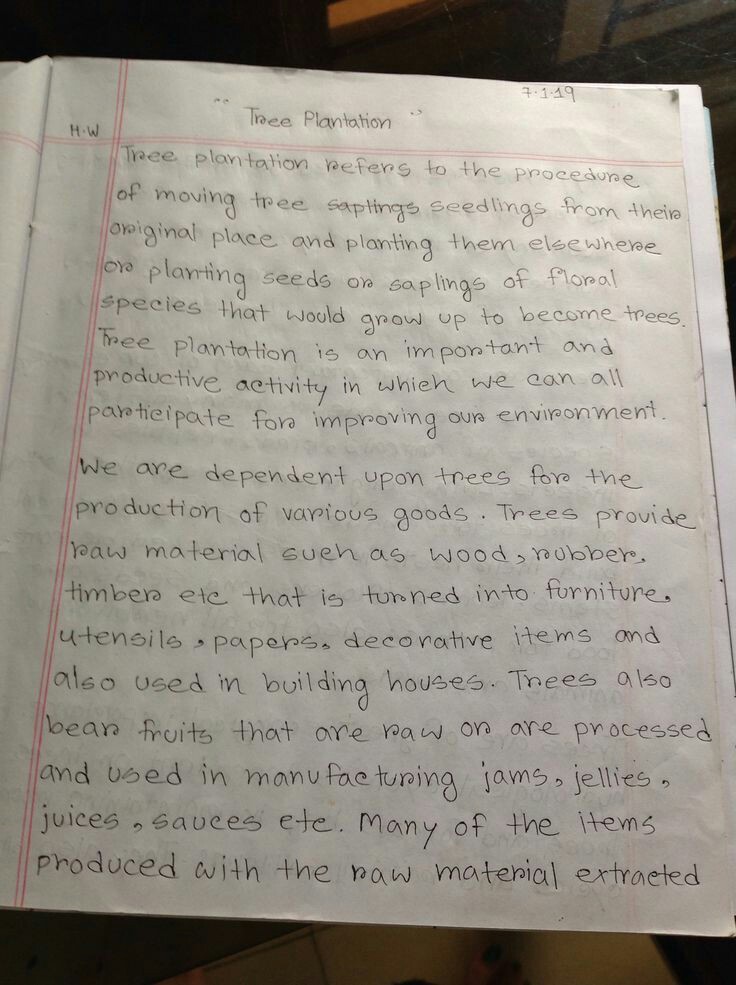 7.1.19
" Tree Plantation "
H.W
Tree plantation refers to the procedure
of moving tree saptings seedlings from their
original place and planting them elsewhere
or planting seeds or saplings of floral
species that would grow up to become trees.
Tree plantation is an important and
productive activity in which we can all
participate for improving our environment.
We are dependent upon trees for the
production of various goods. Trees provide
raw material such as wood, rubber,
timber etc that is turned into furniture,
utensils, papers, decorative items and
also used in building houses. Trees also
bear fruits that are raw or are processed
and used in manufacturing jams, jellies,
juices, sauces etc. Many of the items
produced with the raw material extracted